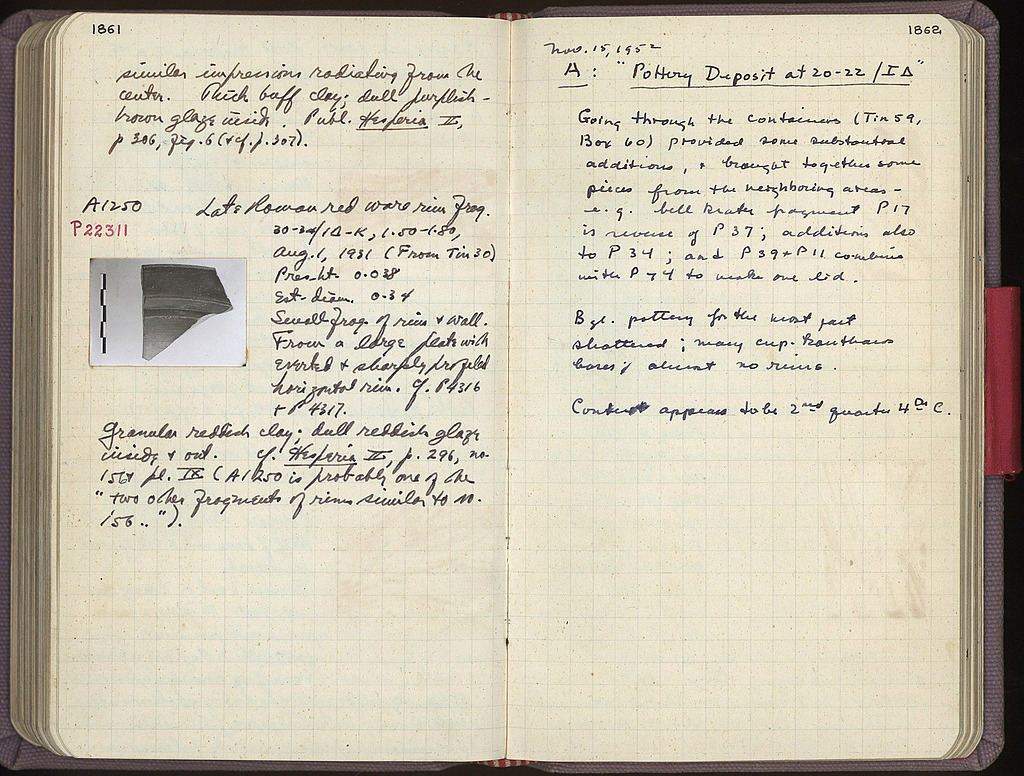 1861
similar impressions radiating from the
center. Thick buff clay; dull purplish-
brown glaze inside. Publ. Hesperia II,
p 306, fig. 6 (+ cf. p. 307).
A1250 Late Roman red ware rim frag.
P22311
30-34/IA-K, 1.50-1.80,
Aug. 1, 1931 (From Tin 30)
Pres. ht. 0.038
Est. diam. 0.34
Small frag of rim + wall.
From a large plate with
everted + sharply profiled
horizontal rim. Cf. P4316
+ P 4317.
Granular reddish clay; dull reddish glaze
inside + out. Cf. Hesperia II, p. 296, no
156 + pl. IX (A1250 is probably one of the
"two other fragments of rims similar to no.
156 .. ").
1862
Nov. 15, 1952
A : "Pottery Deposit at 20-22/ΙΔ"
Going through the containers (Tin 59,
Box 60) provided some substantial
additions, + brought together some
pieces from the neighboring areas -
e.g. bell krater fragment P17
is reverse of P37; additions also
to P34; and P39+P11 combine
with P74 to make one lid.
B gl. pottery for the most part
shattered; many cup-kantharos
bases; almost no rims.
Context appears to be 2nd quarter 4th C.